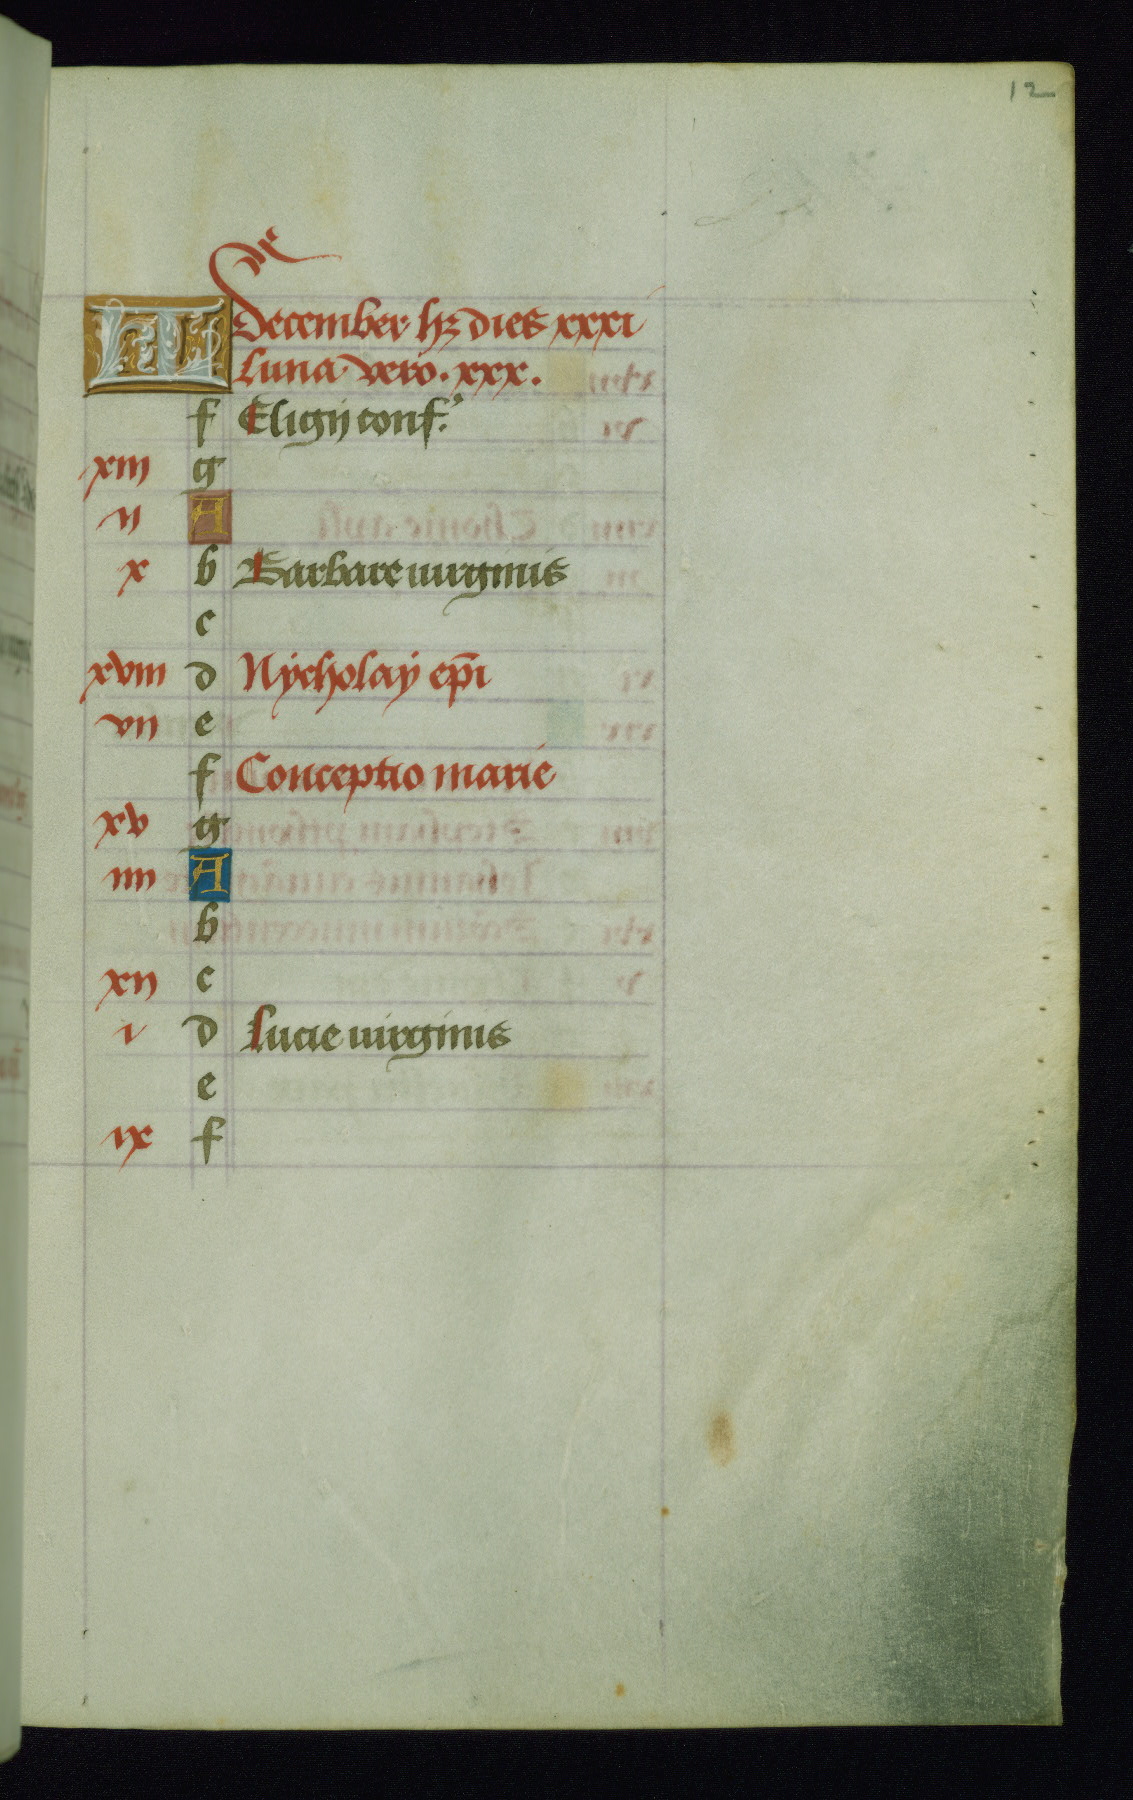 12
KL December hz dies xxxi
Luna vero. xxx.
f Eligij conf.
xiii g
ii A
x b Barbare uirginis
c
xviii d Nycholay epi
vii e
f Conceptio marie
xv g
iiii A
b
xii c
i d Lucie uirginis
e
ix f